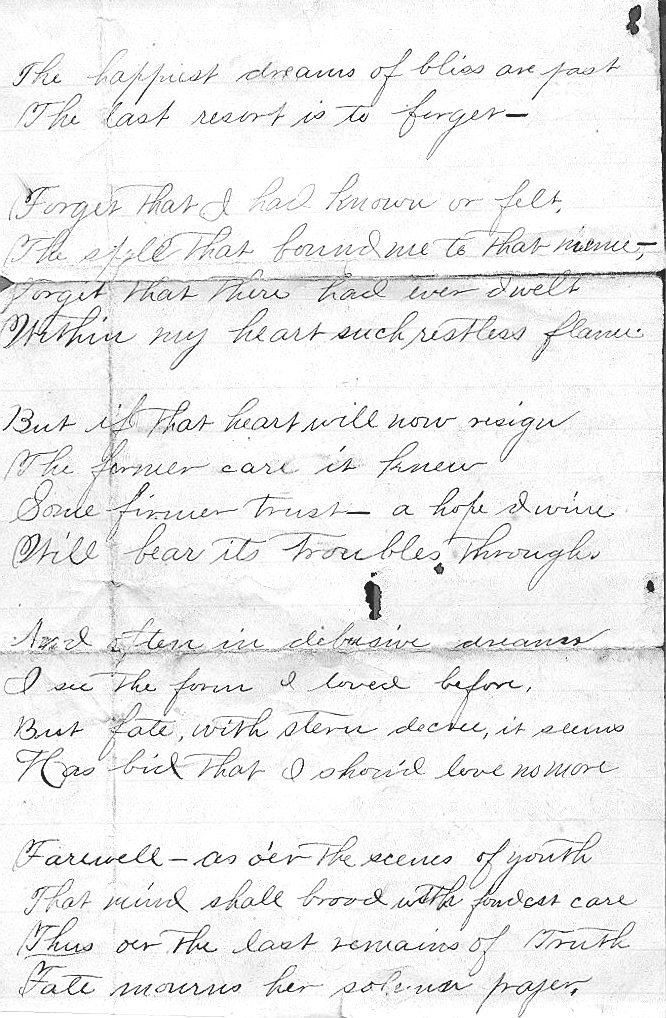 The happiest dreams of bliss are past
The last resort is to forget—
Forget that I had known or felt,
The spell that bound me to that name,
Forget that there had ever dwelt
Within my heart such restless flame.
But if that heart will now resign
The former care it knew
Some firmer trust— a hope divine
Will bear its troubles through.
And often in delusive dreams
I see the form I loved before,
But fate, with stern decree, it seems
Has bid that I shou'd love no more
Farewell — as o'er the scenes of youth
That mind shall brood with fondest care
Thus oer the last remains of Truth
Fate mourns her solemn prayer.